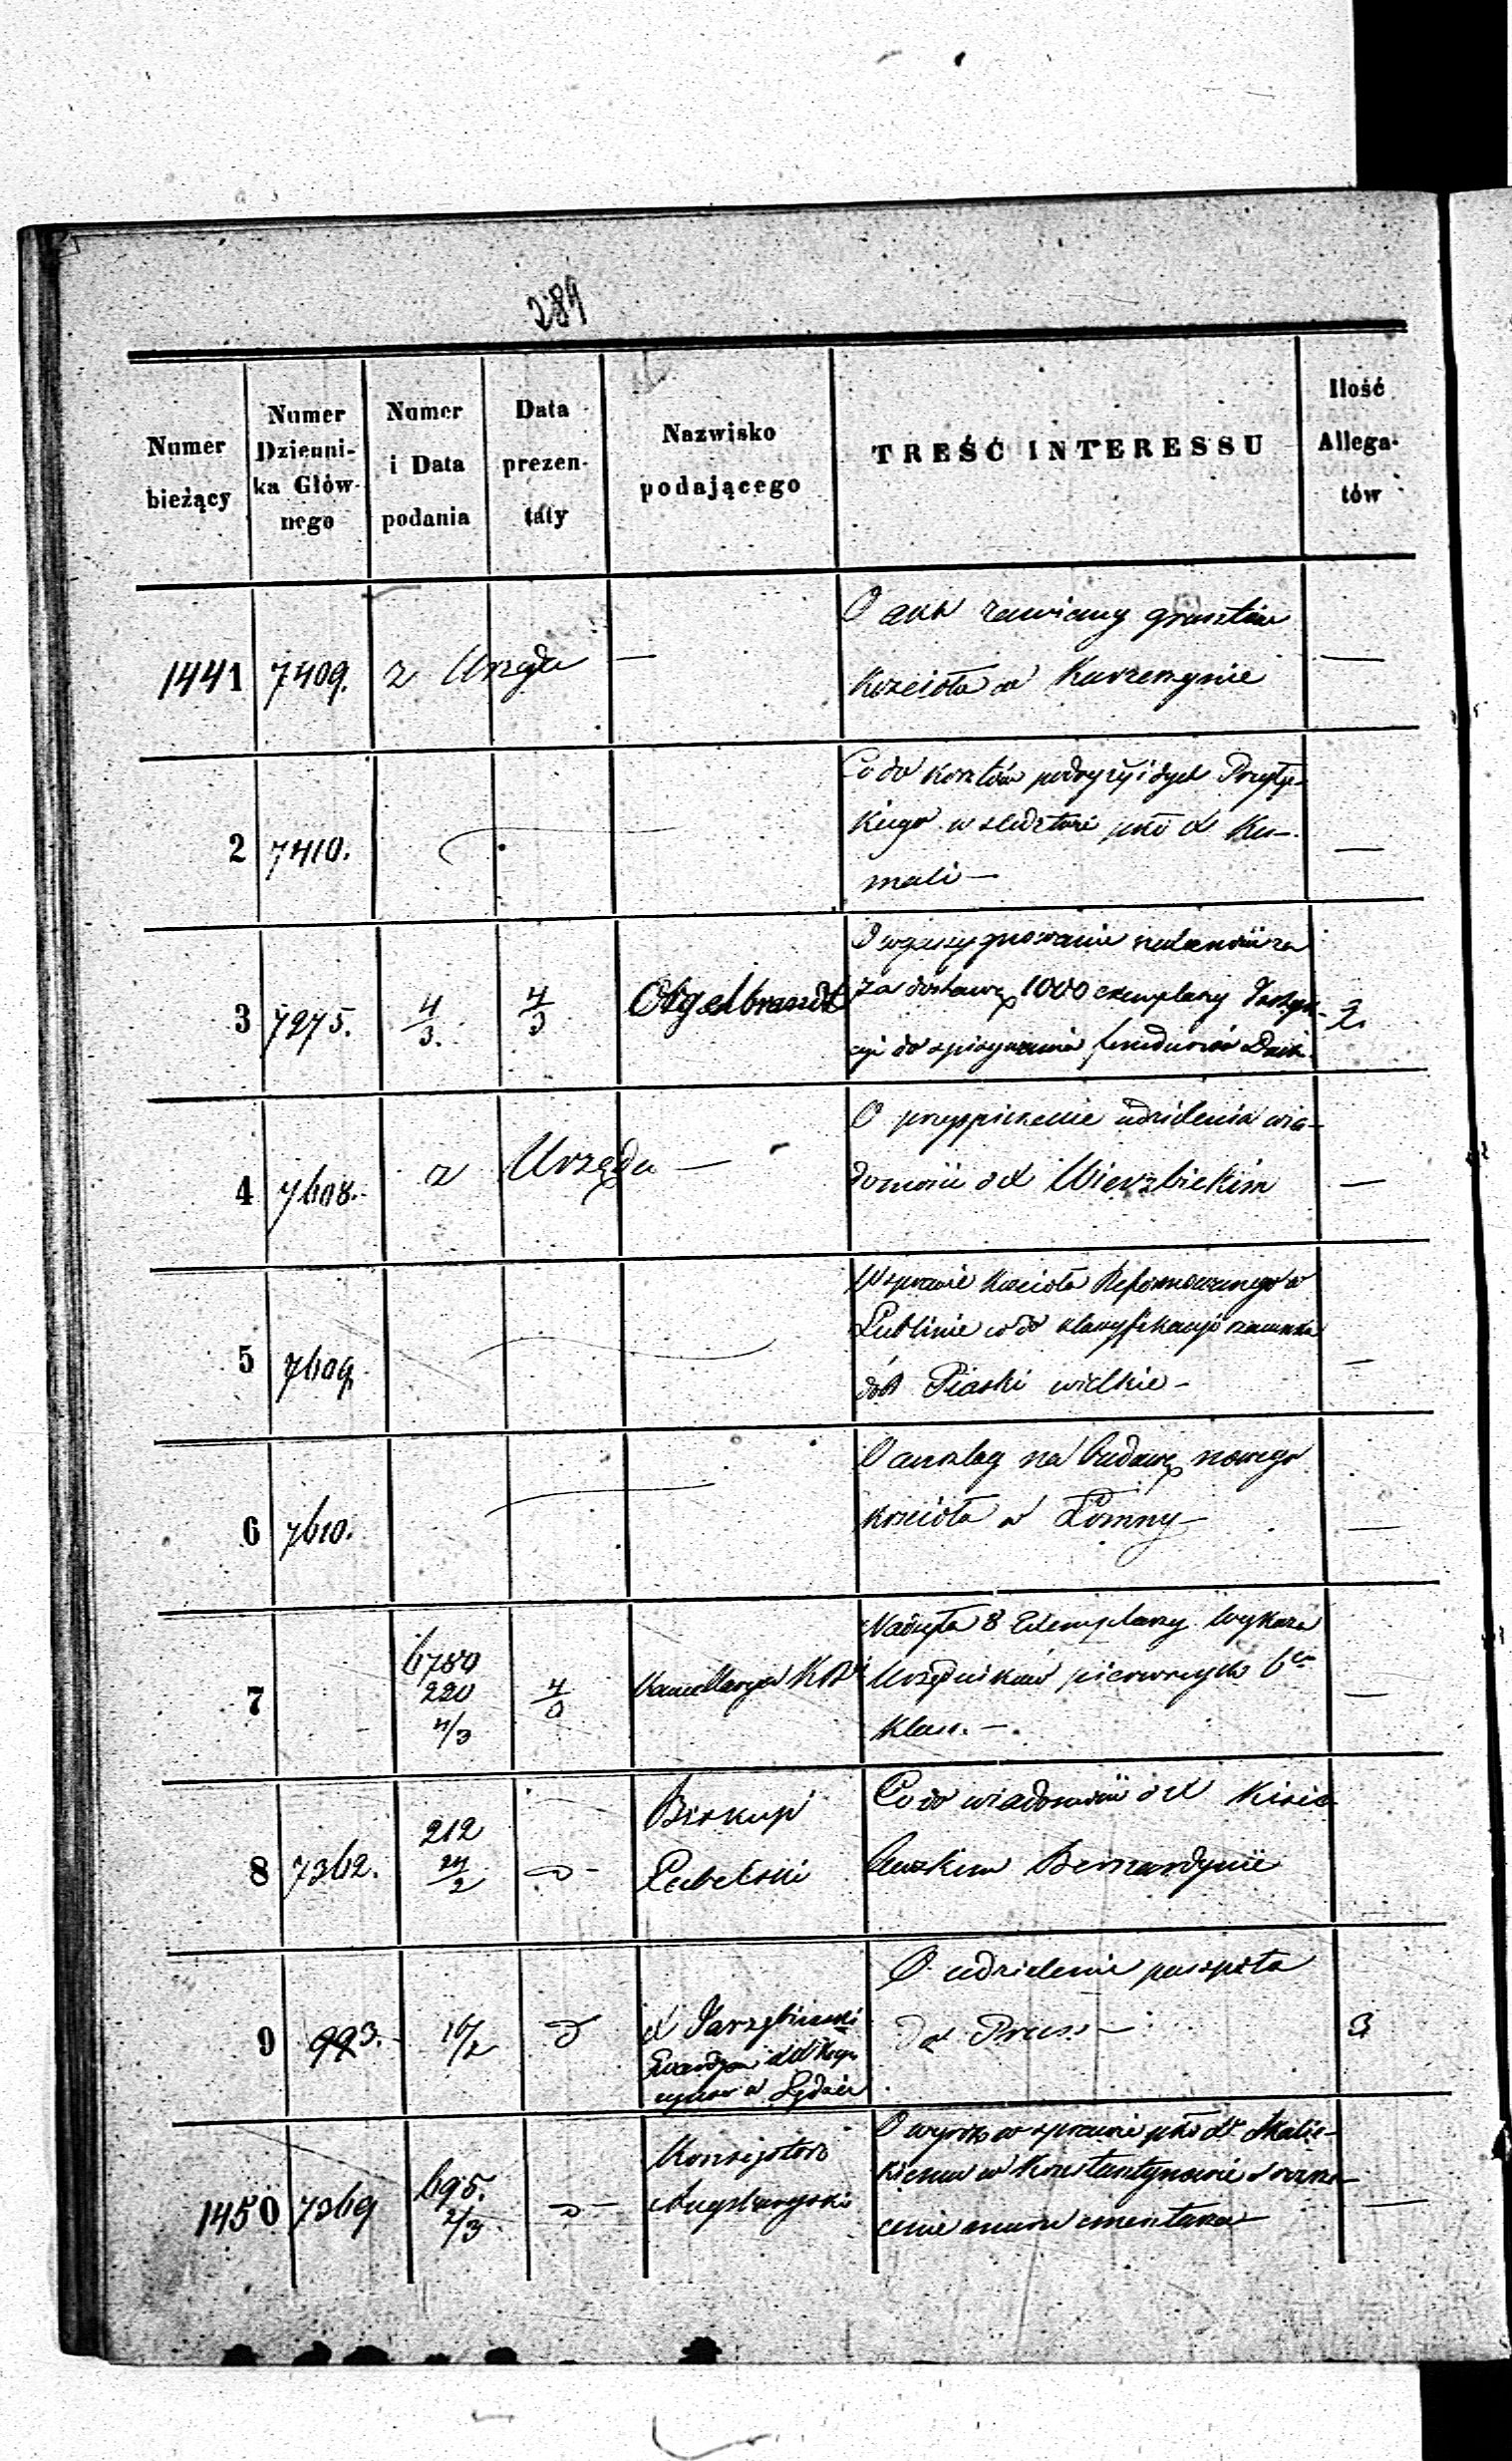 289
Numer bieżący
Numer Dzienni-ka Głów-nego
Numer i Data podania
Data prezen-taty
Nazwisko podającego
TREŚĆ INTERESSU
Ilość Allega-tów
1441 7409. z Urzędu — O zamiany gruntów —
Kościoła w Kurzenynie
2 7410. Co do kosztów podróży i dyet —
kiego w śledztwie Ku-
mali —
3 7275. 4/3. 4/3 Orgelbrandt O wyassygnowanie 2.
za dostawę 1000 exemplarzy Instruk-
cyi do spisywania funduszów
4 7608. z Urzędu — O przyspieszenie udzielenia wia- —
domości o X Wierzbickim
5 7609. W sprawie Kościoła Reformowanego w —
Lublinie co do klassyfikacyi szacunku
dóbr Piaski wielkie —
6 7610. O anszlag na budowę nowego —
kościoła w Łomny —
7 6780 220 4/3 4/3 Kancellarya Nadsyła 8 Exemplarzy Wykazu —
Urzędników pierwszych 6ciu
Klass. —
8 7362. 212 24/2 Biskup Lubelski Co do wiadomości o X
Bernardynie
9 993. 16/2 X Jarzębiński O udzielenie paszportu 3
w Lędzie do Pruss —
1450 7369 695. 2/3 Konsystorz Augsburgski O w sprawie —
w Konstantynowie o
cenie muru cmentarza —